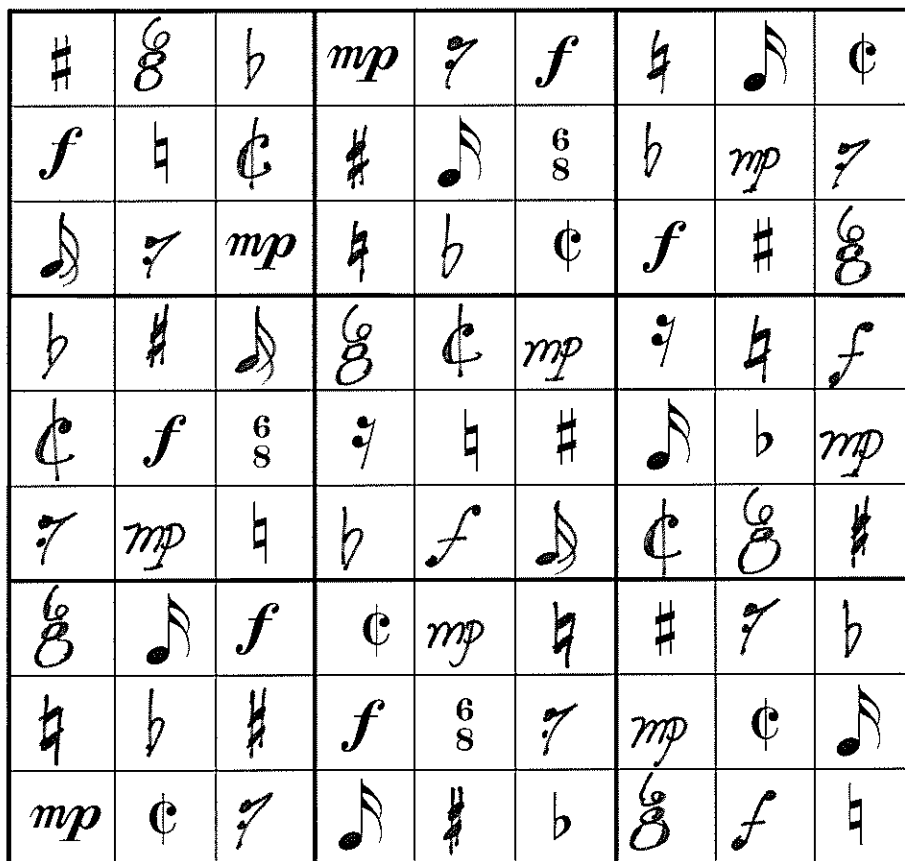 ♯ 6/8 ♭ mp 𝄿 f ♮ 𝅘𝅥𝅯 𝄵
f ♮ 𝄵 ♯ 𝅘𝅥𝅯 6/8 ♭ mp 𝄿
𝅘𝅥𝅯 𝄿 mp ♮ ♭ 𝄵 f ♯ 6/8
♭ ♯ 𝅘𝅥𝅯 6/8 𝄵 mp 𝄿 ♮ f
𝄵 f 6/8 𝄿 ♮ ♯ 𝅘𝅥𝅯 ♭ mp
𝄿 mp ♮ ♭ f 𝅘𝅥𝅯 𝄵 6/8 ♯
6/8 𝅘𝅥𝅯 f 𝄵 mp ♮ ♯ 𝄿 ♭
♮ ♭ ♯ f 6/8 𝄿 mp 𝄵 𝅘𝅥𝅯
mp 𝄵 𝄿 𝅘𝅥𝅯 ♯ ♭ 6/8 f ♮